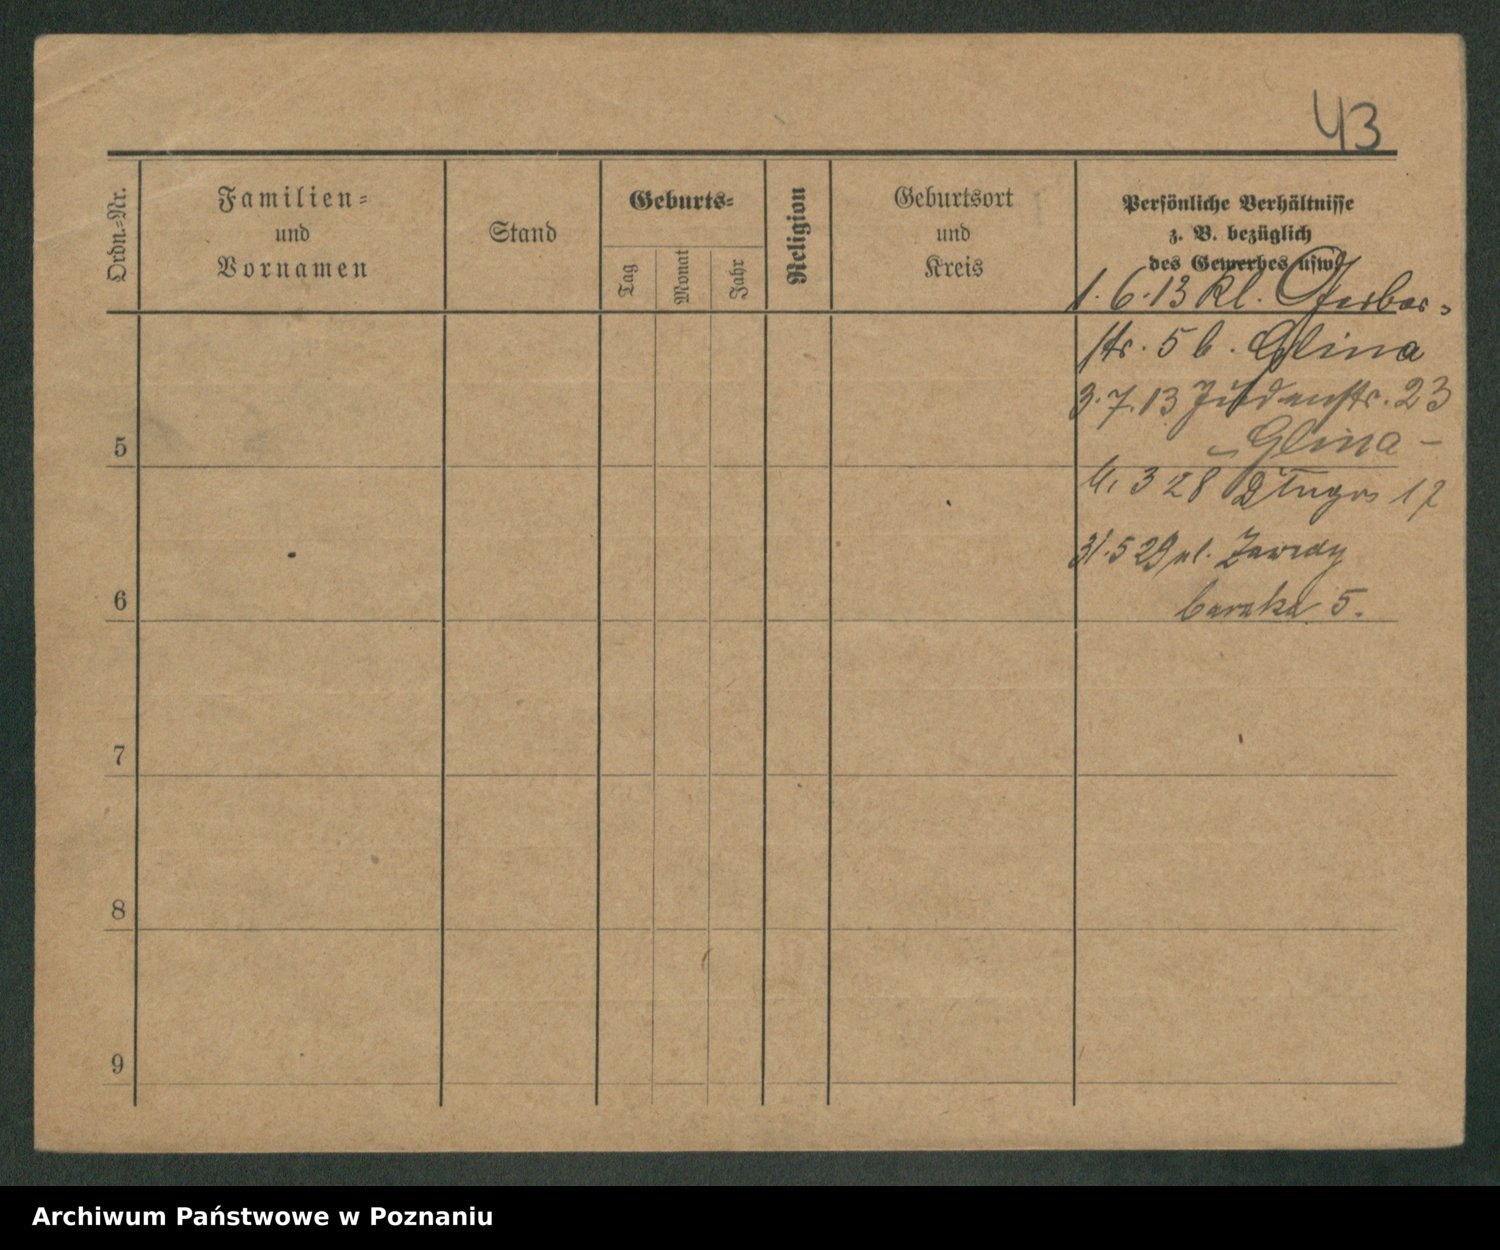 43
Ordn.=Nr.
Familien=
und
Vornamen
Stand
Geburts=
Tag
Monat
Jahr
Religion
Geburtsort
und
Kreis
Persönliche Verhältnisse
z. B. bezüglich
des Gewerbes usw.
1.6.13 kl. Gerber=
str. 5 b. Glina
3.7.13 Judenstr. 23
Glina -
3 28 Długa 17
31.5 29 ul. Zawady
baraka 5.
5
6
7
8
9
Archiwum Państwowe w Poznaniu